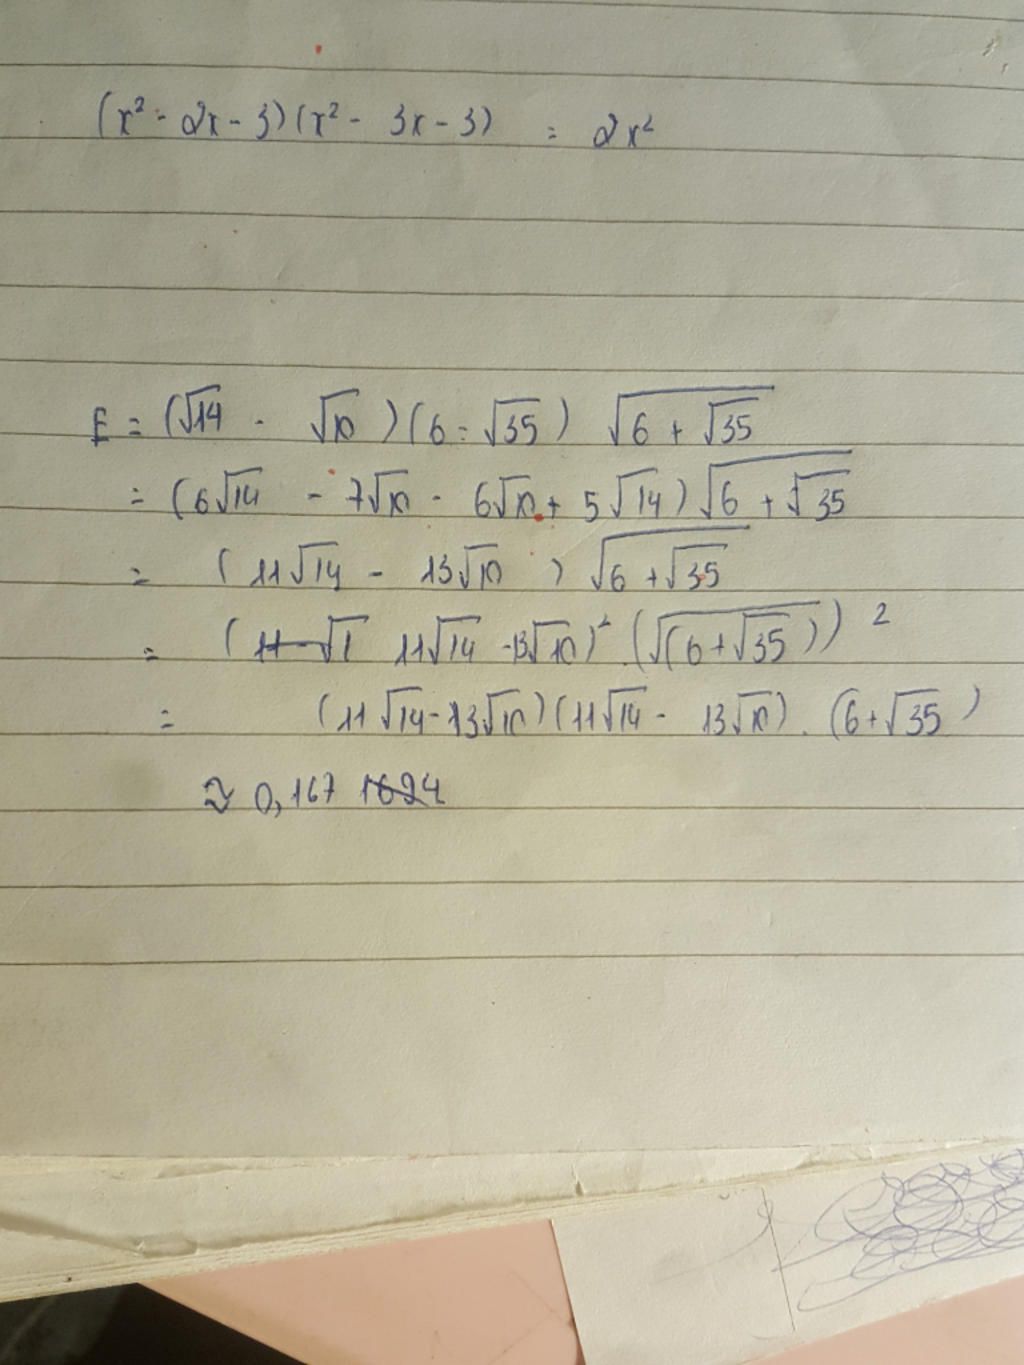 (x² - 2x - 3)(x² - 3x - 3) = 2x²
E = (√14 - √10)(6 - √35) √(6 + √35)
= (6√14 - 7√10 - 6√10 + 5√14) √(6 + √35)
= (11√14 - 13√10) √(6 + √35)
= (11√14 - 13√10)² . (√(6 + √35))²
= (11√14 - 13√10)(11√14 - 13√10) . (6 + √35)
≈ 0,167